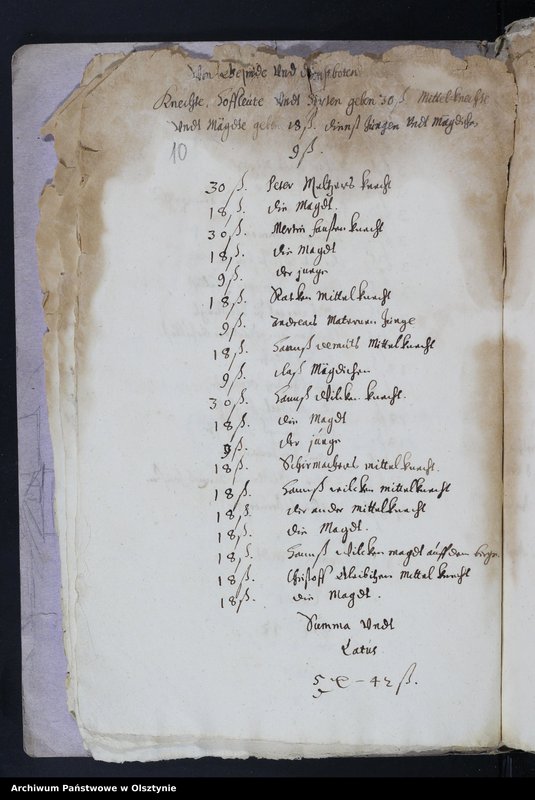 Von Gesinde Vnd dienstboten
Knechte, Hoffleute Vndt Hirten geben 30 ß. Mittel knechte
Vndt Mägdte geben 18 ß. dienst Jungen Vndt Mägdichen
9 ß.
10
30 ß. Peter Meltzers knecht
18 ß. die Magdt.
30 ß. Merten knecht
18 ß. die Magdt
9 ß. der junge
18 ß. Mittel knecht
9 ß. Andreas Maternen Junge
18 ß. Hannß Mittel knecht
9 ß. daß Mägdichen
30 ß. Hannß Wilcken knecht.
18 ß. die Magdt
9 ß. der junge
18 ß. Schirmachers mittel knecht.
18 ß. Hannß wilcken mittelknecht
18 ß. der ander mittelknecht
18 ß. die Magdt.
18 ß. Hannß Wilcken magdt auff dem
18 ß. Christoff Mittel knecht
18 ß. die Magdt.
Summa Vndt
Latus
5 – 42 ß.
Archiwum Państwowe w Olsztynie